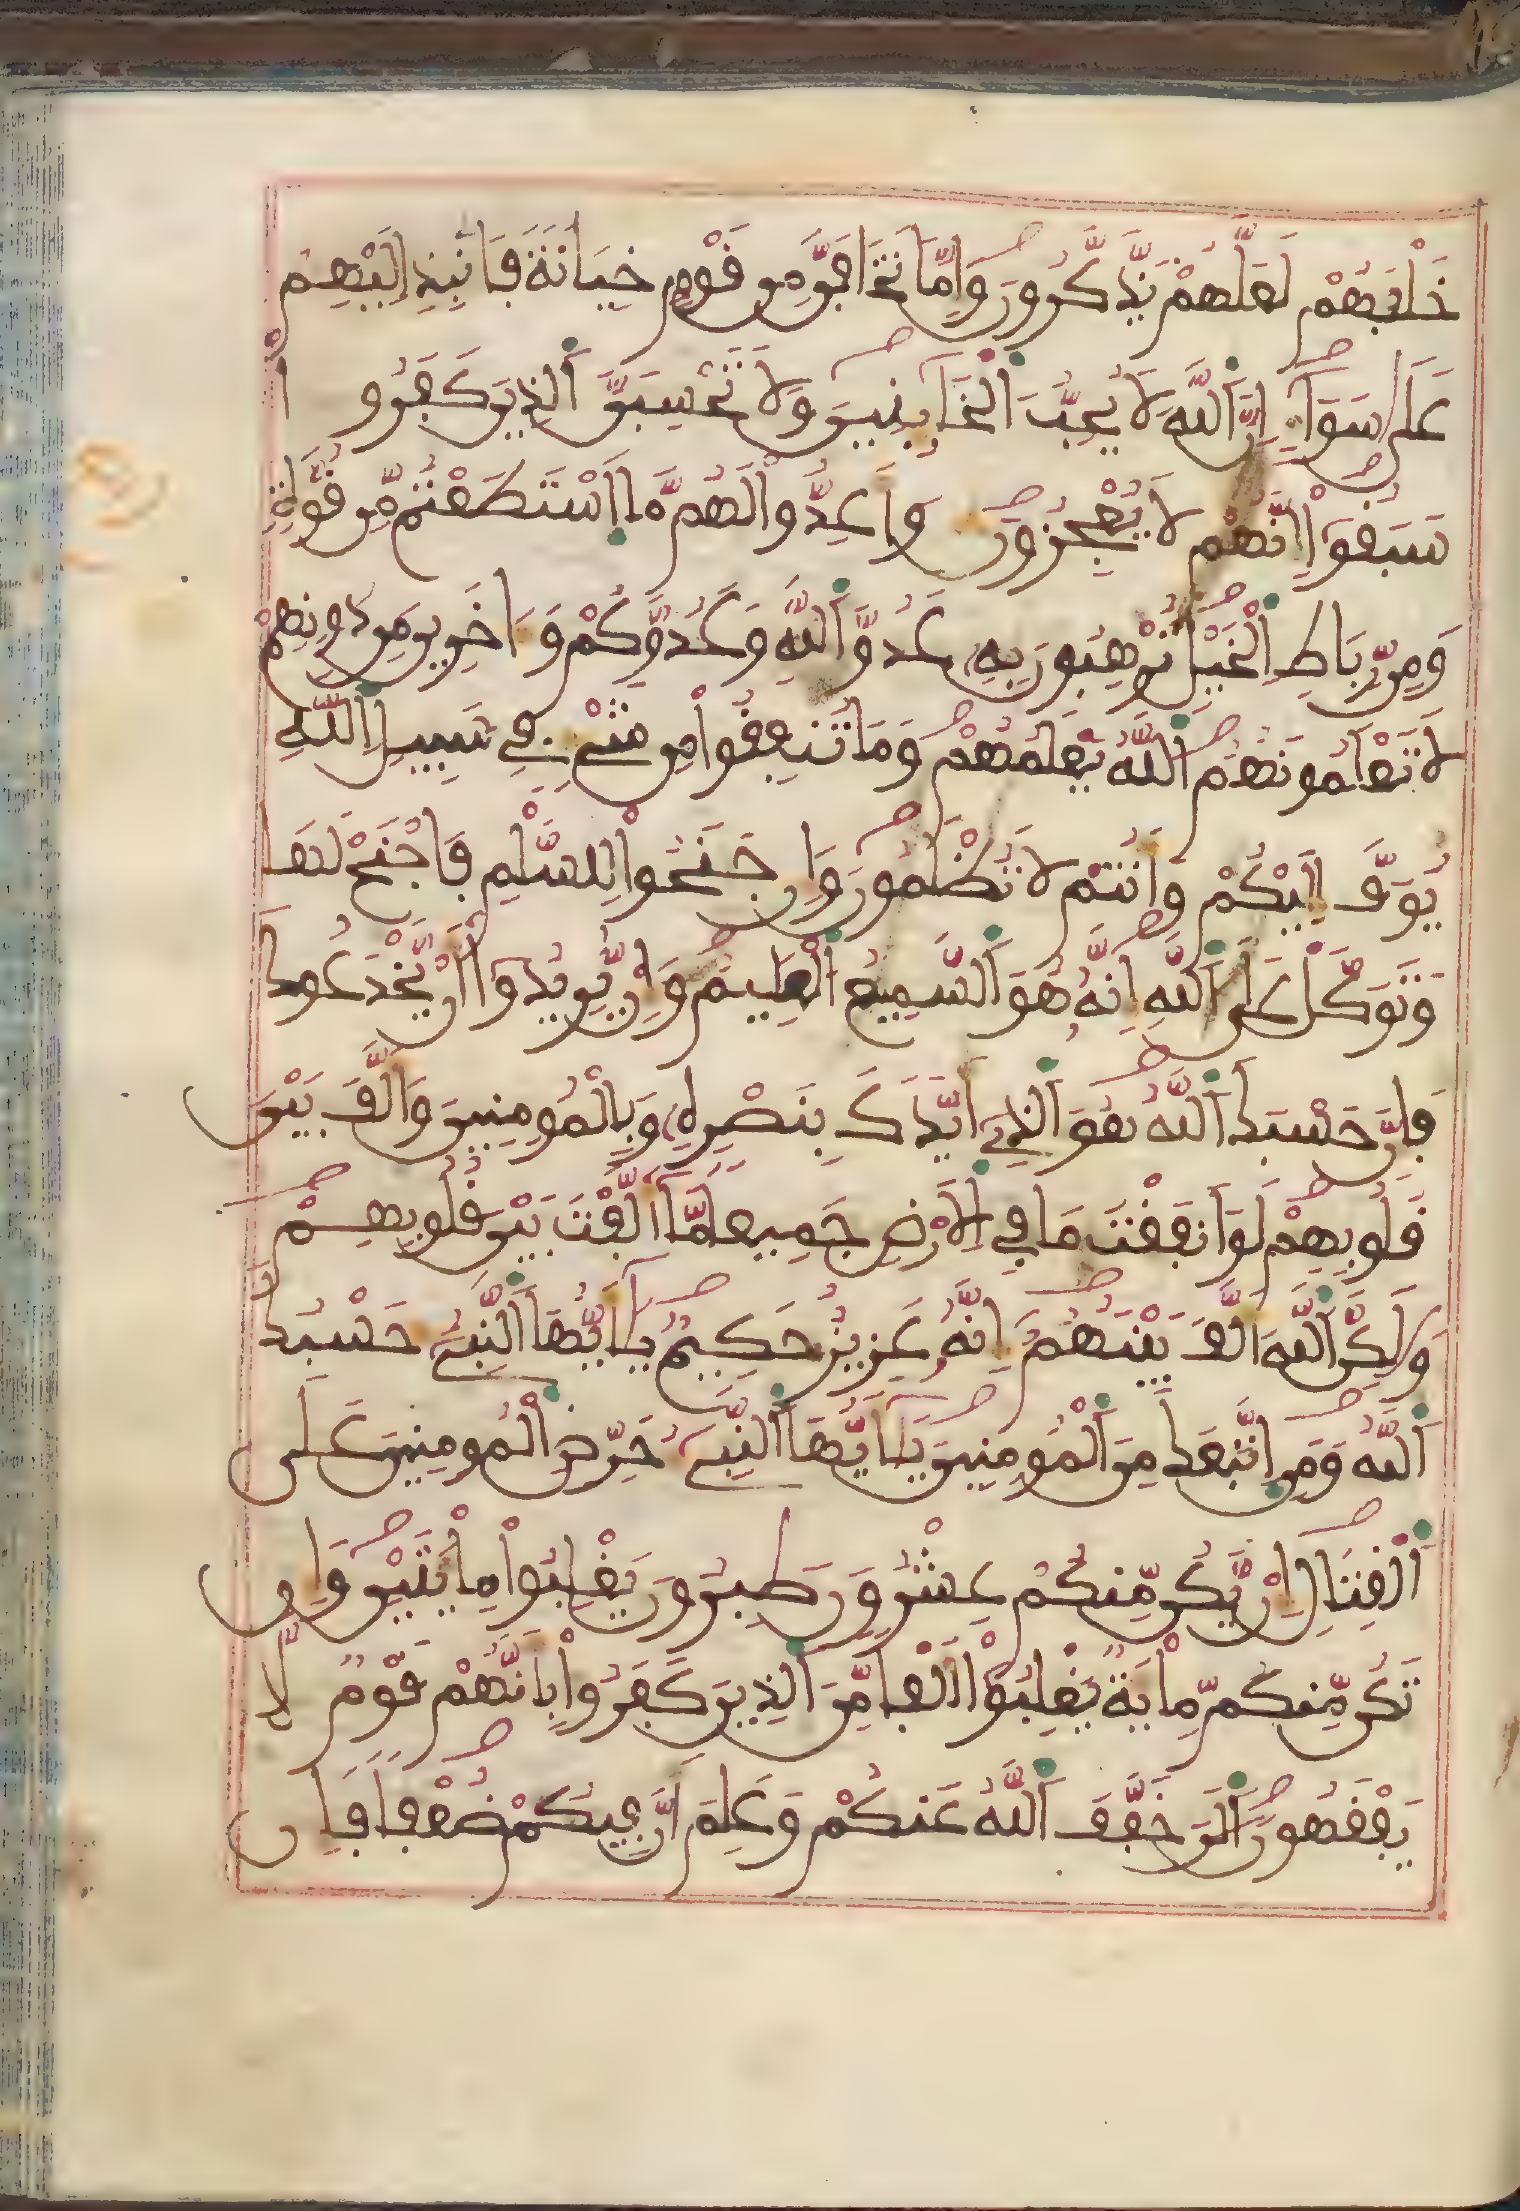 خَلْفَهُمْ لَعَلَّهُمْ يَذَّكَّرُونَ وَإِمَّا تَخَافَنَّ مِن قَوْمٍ خِيَانَةً فَانۢبِذِ اِلَيْهِمْ
عَلَىٰ سَوَآءٍ اِنَّ اَللَّهَ لَا يُحِبُّ اُلْخَآئِنِينَ وَلَا تَحْسِبَنَّ اَلذِينَ كَفَرُو ا
سَبَقُوٓا إِنَّهُمْ لَا يُعْجِزُونَ وَأَعِدُّوا لَهُم مَّا اَسْتَطَعْتُم مِّن قُوَّةٍ
وَمِن رِّبَاطِ اِلْخَيْلِ تُرْهِبُونَ بِهِ عَدُوَّ اَللَّهِ وَعَدُوَّكُمْ وَءَاخَرِينَ مِن دُونِهِمْ
لَا تَعْلَمُونَهُمُ اُللَّهُ يَعْلَمُهُمْ وَمَا تُنفِقُوا مِن شَيْءٍ فِي سَبِيلِ اِللَّهِ
يُوَفَّ إِلَيْكُمْ وَأَنتُمْ لَا تُظْلَمُونَ وَإِن جَنَحُوا لِلسَّلْمِ فَاجْنَحْ لَهَا
وَتَوَكَّلْ عَلَى اَللَّهِ إِنَّهُ هُوَ اَلسَّمِيعُ اُلْعَلِيمُ وَإِنْ يُّرِيدُوٓا أَنْ يَّخْدَعُوكَ
فَإِنَّ حَسْبَكَ اَللَّهُ هُوَ اَلذِي أَيَّدَكَ بِنَصْرِهِ وَبِالْمُومِنِينَ وَأَلَّفَ بَيْنَ
قُلُوبِهِمْ لَوَ اَنفَقْتَ مَا فِي اِلْأَرْضِ جَمِيعًا مَّا أَلَّفْتَ بَيْنَ قُلُوبِهِمْ
وَلَٰكِنَّ اَللَّهَ أَلَّفَ بَيْنَهُمْ إِنَّهُ عَزِيزٌ حَكِيمٌ يَٰٓأَيُّهَا اَلنَّبِيٓءُ حَسْبُكَ
اَللَّهُ وَمَنِ اِتَّبَعَكَ مِنَ اَلْمُومِنِينَ يَٰٓأَيُّهَا اَلنَّبِيٓءُ حَرِّضِ اِلْمُومِنِينَ عَلَى
اَلْقِتَالِ إِنْ يَّكُن مِّنكُمْ عِشْرُونَ صَٰبِرُونَ يَغْلِبُوا مِاْيَتَيْنِ وَإِن
تَكُن مِّنكُم مِّاْيَةٌ يَغْلِبُوٓا أَلْفًا مِّنَ اَلذِينَ كَفَرُوا بِأَنَّهُمْ قَوْمٌ لَّا
يَفْقَهُونَ اَلَٰنَ خَفَّفَ اَللَّهُ عَنكُمْ وَعَلِمَ أَنَّ فِيكُمْ ضُعْفًا فَإِن